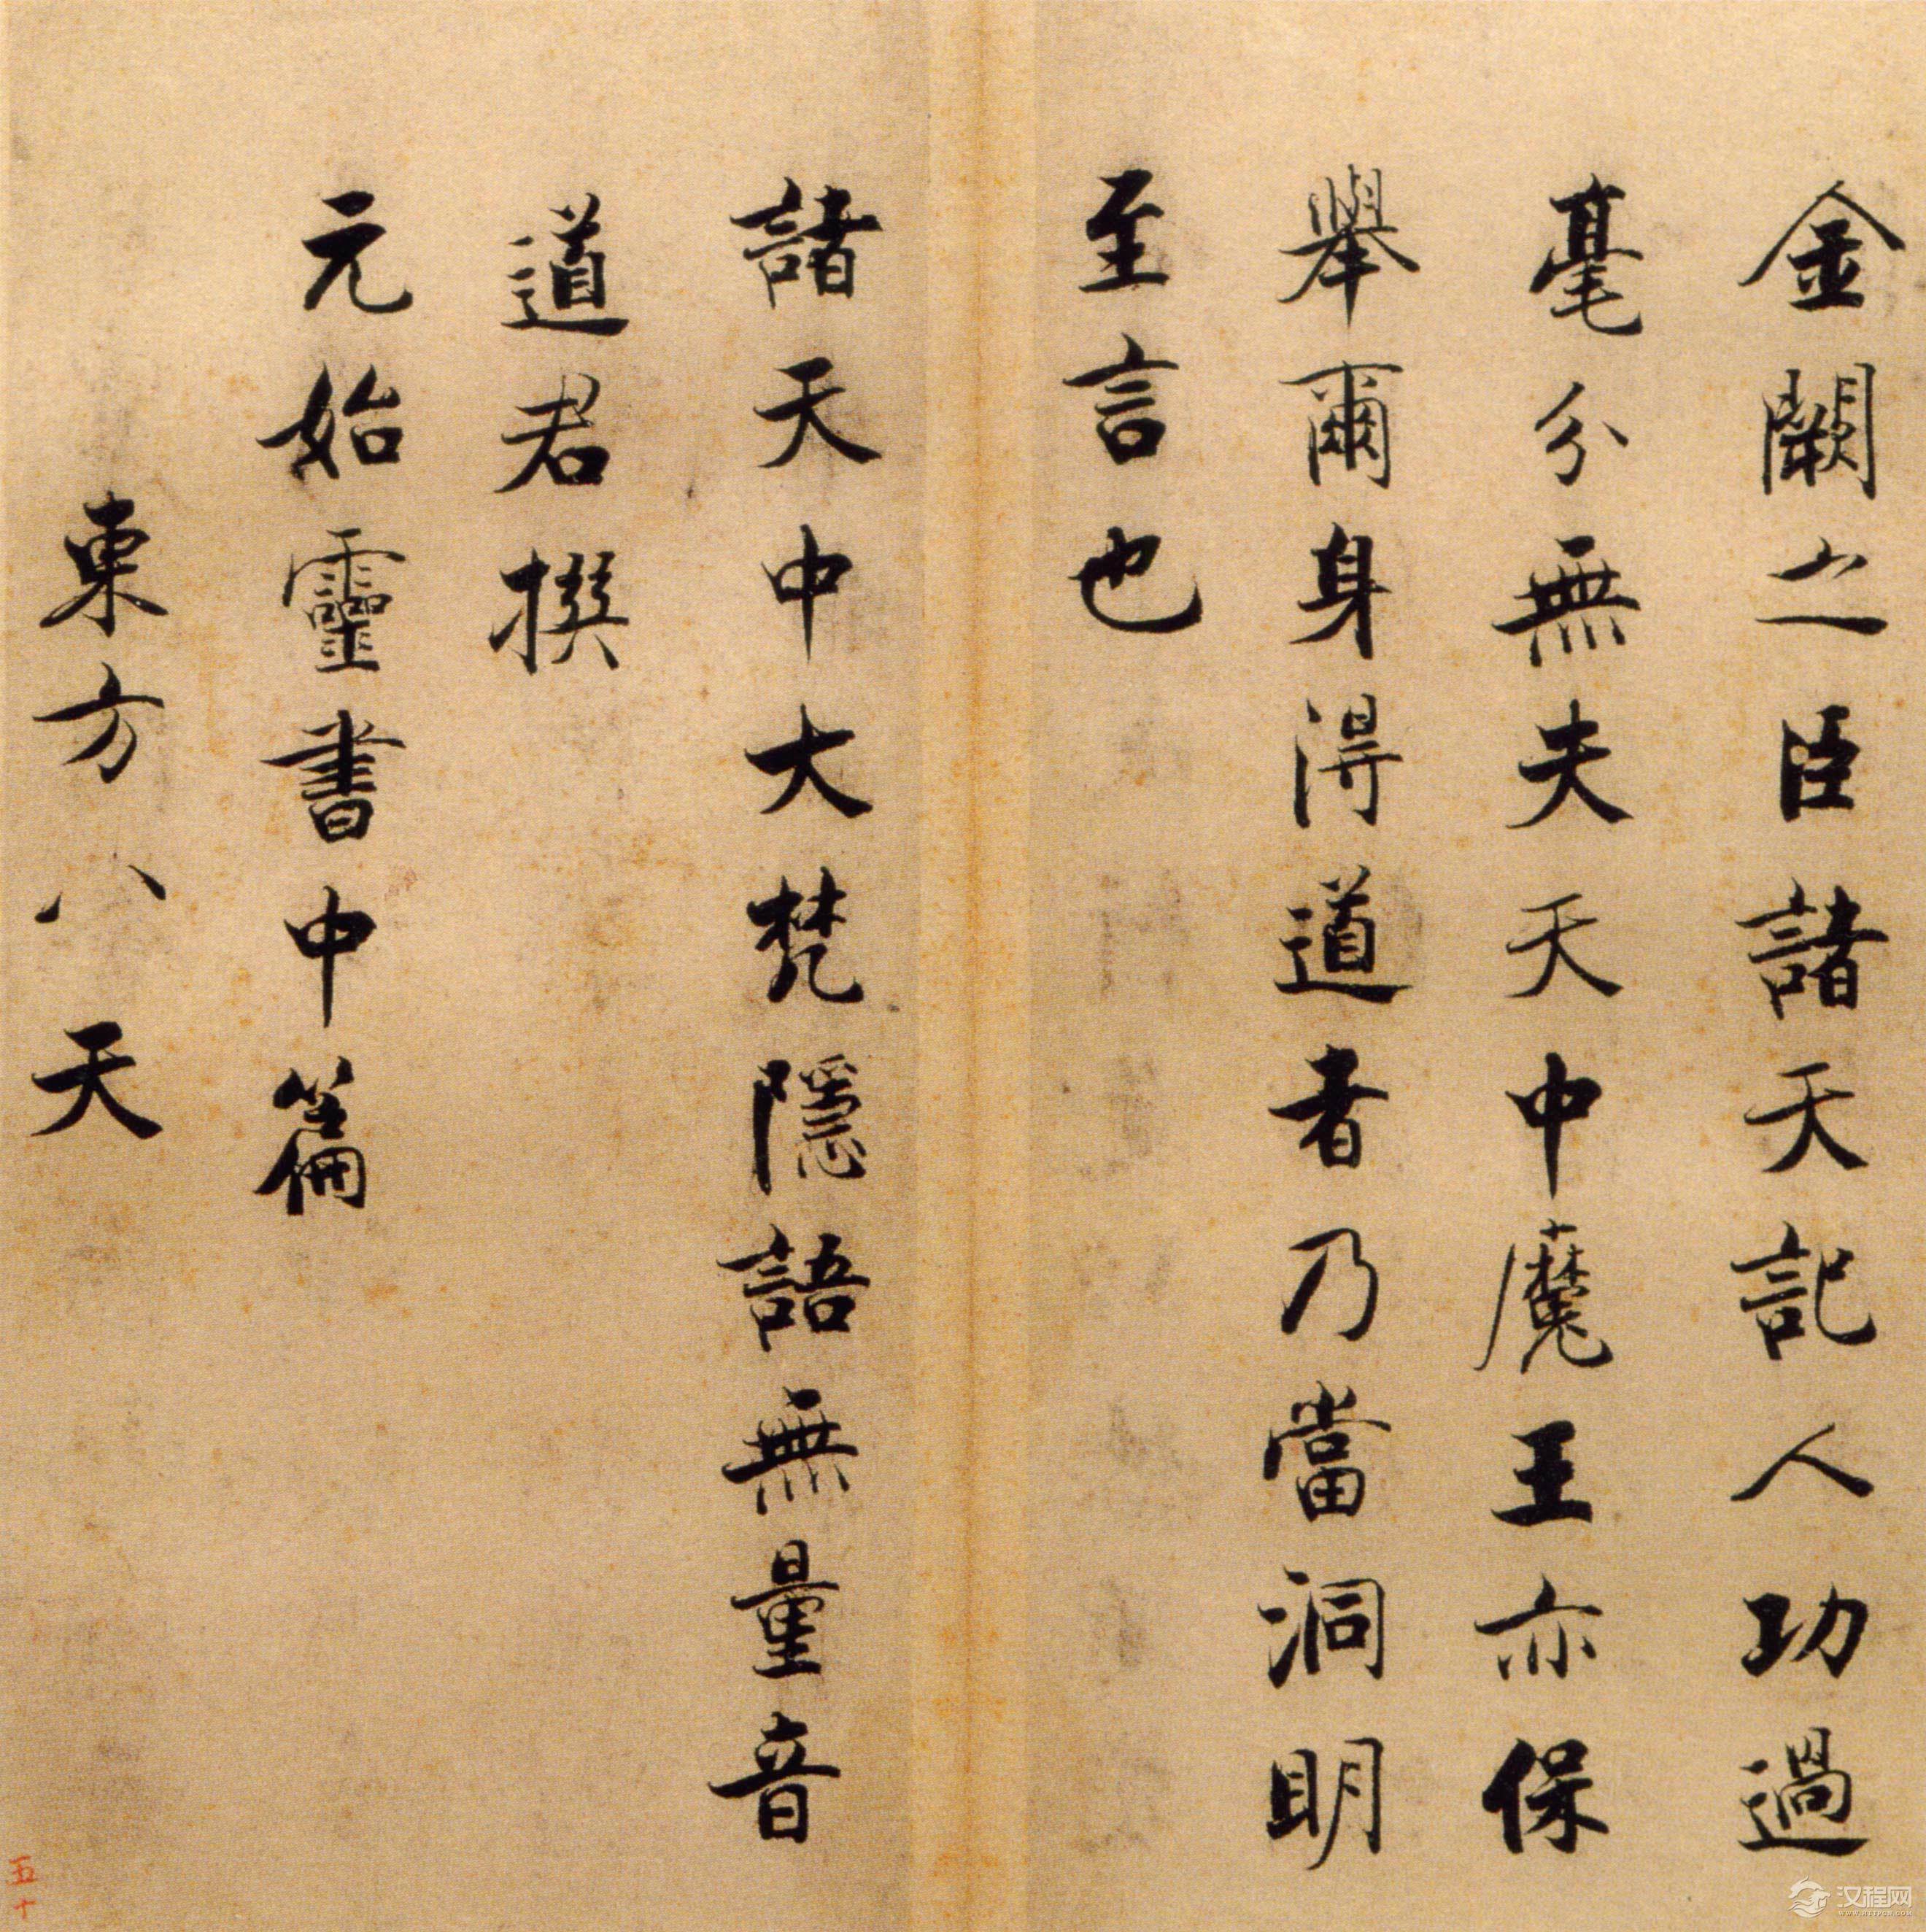 金闕之臣諸天記人功過
毫分無失天中魔王亦保
舉爾身得道者乃當洞明
至言也
諸天中大梵隱語無量音
道君撰
元始靈書中篇
東方八天
五十
汉程网
WWW.HTTPCN.COM